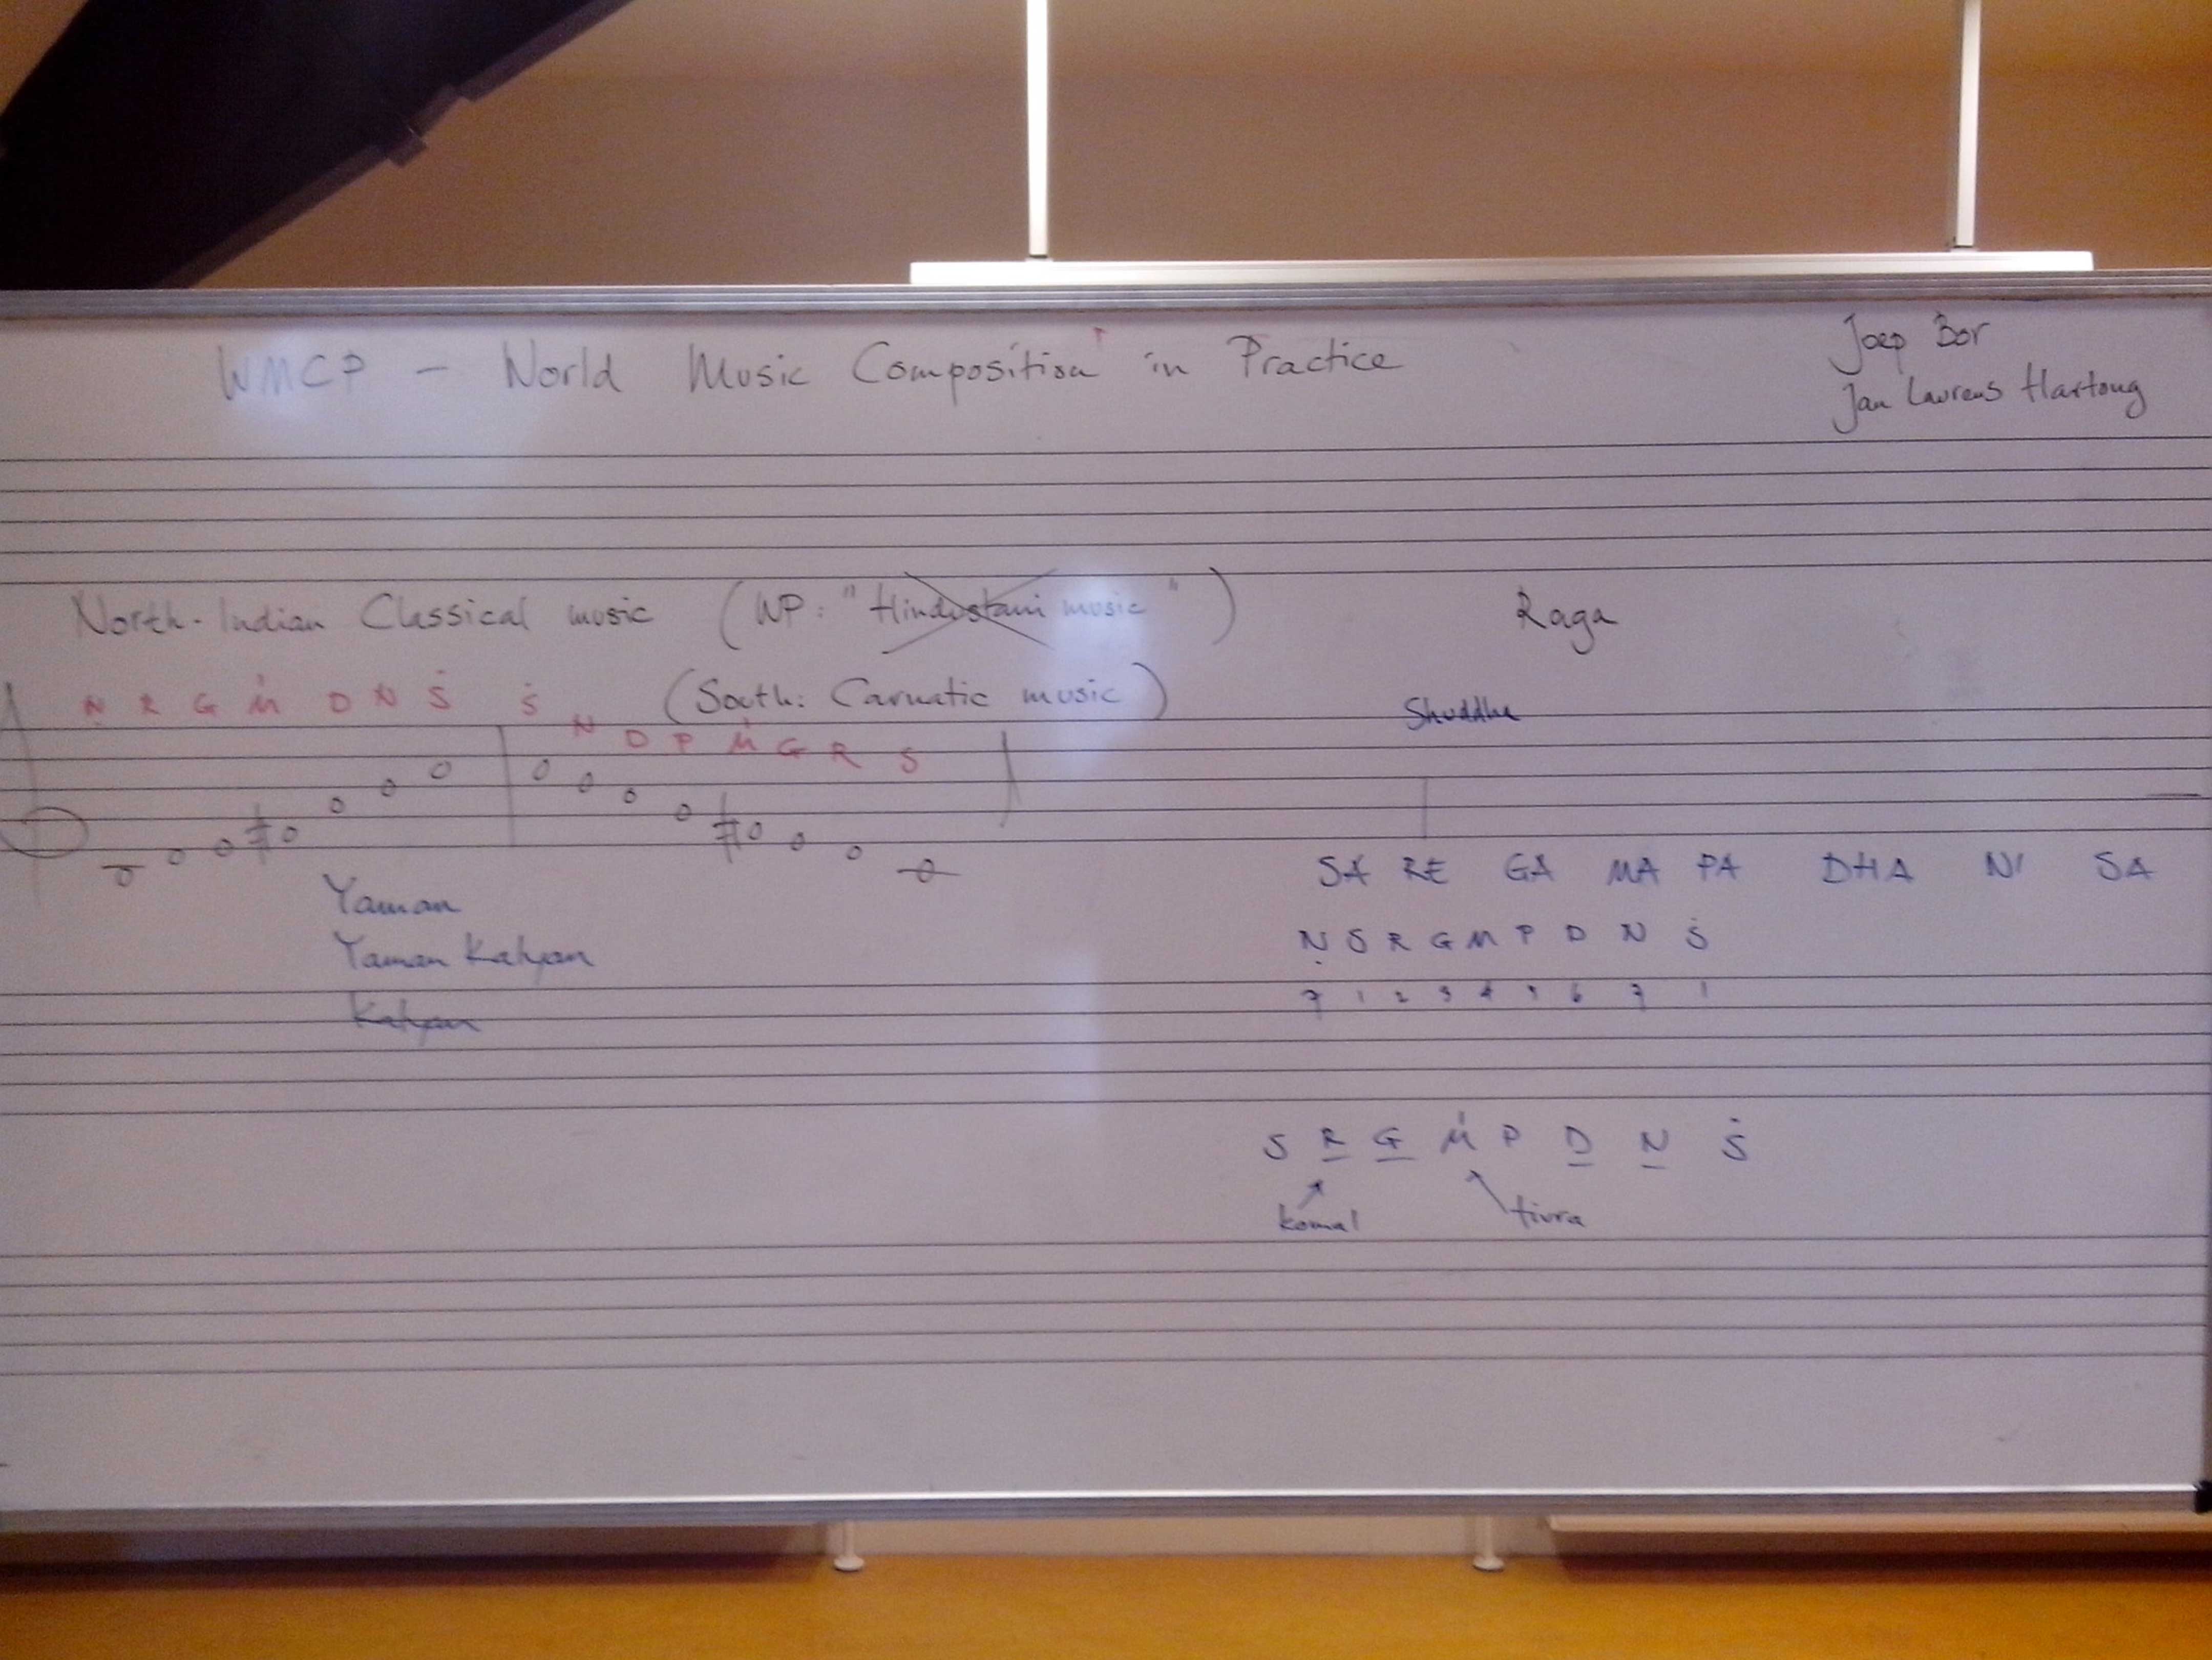 WMCP - World Music Composition in Practice
Joep Bor
Jan Laurens Hartong
North-Indian Classical music (WP: "Hindustani music")
Raga
(South: Carnatic music)
Shuddha
Ṇ R G Ṁ D N Ṡ Ṡ N D P Ṁ G R S
Yaman
Yaman Kalyan
Kalyan
SA RE GA MA PA DHA NI SA
Ṇ S R G M P D N Ṡ
7 1 2 3 4 5 6 7 1
S R̲ G̲ Ṁ P D̲ N̲ Ṡ
komal tivra